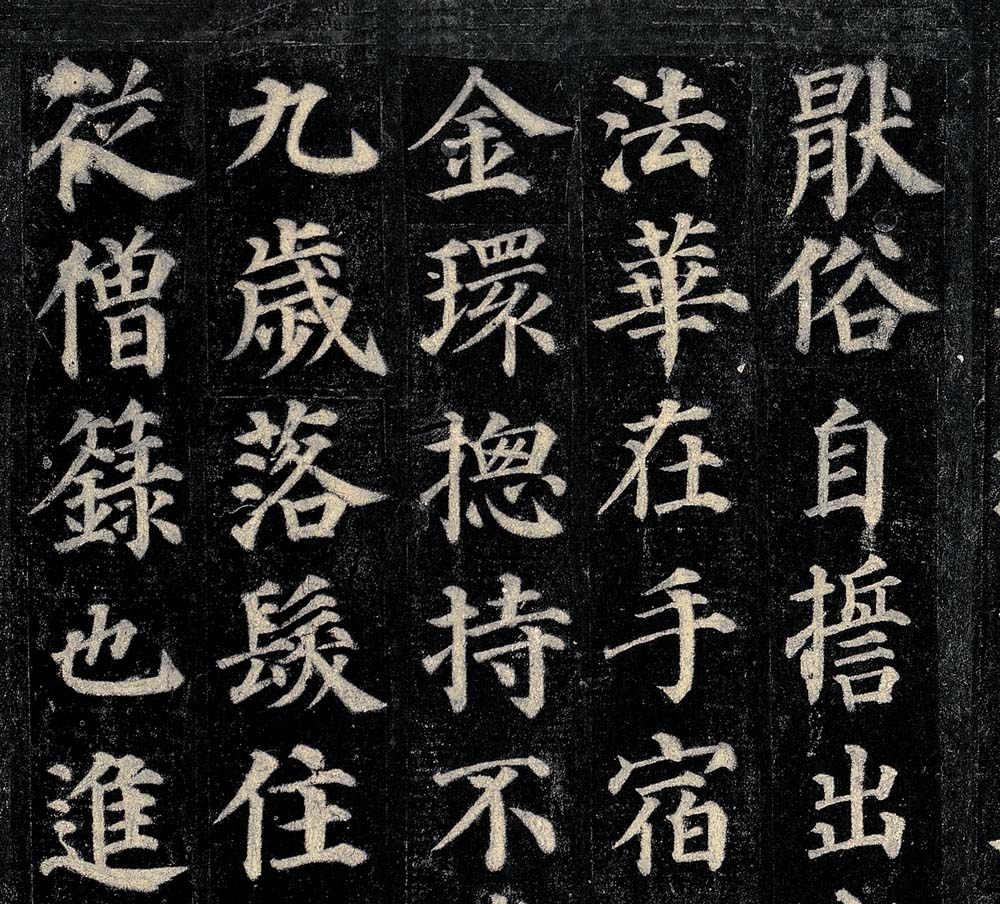 猒俗自誓出
法華在手宿
金環揔持不
九歲落髮住
從僧錄也進